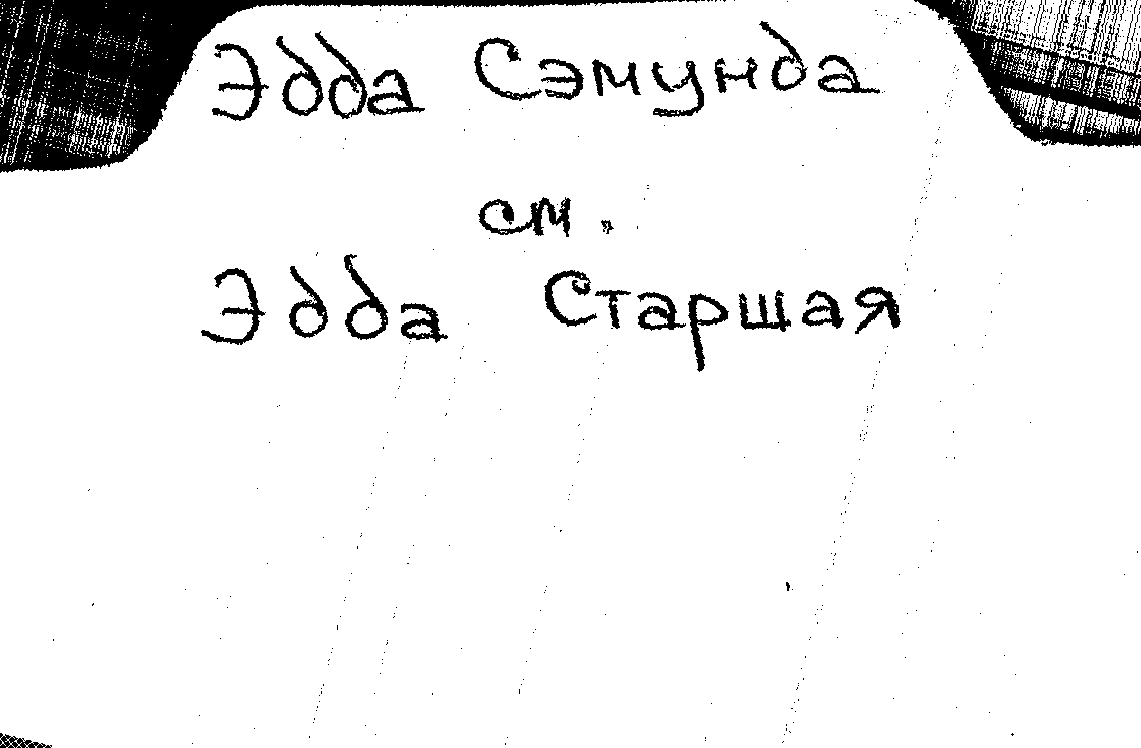 Эдда Сэмунда
см.
Эдда Старшая